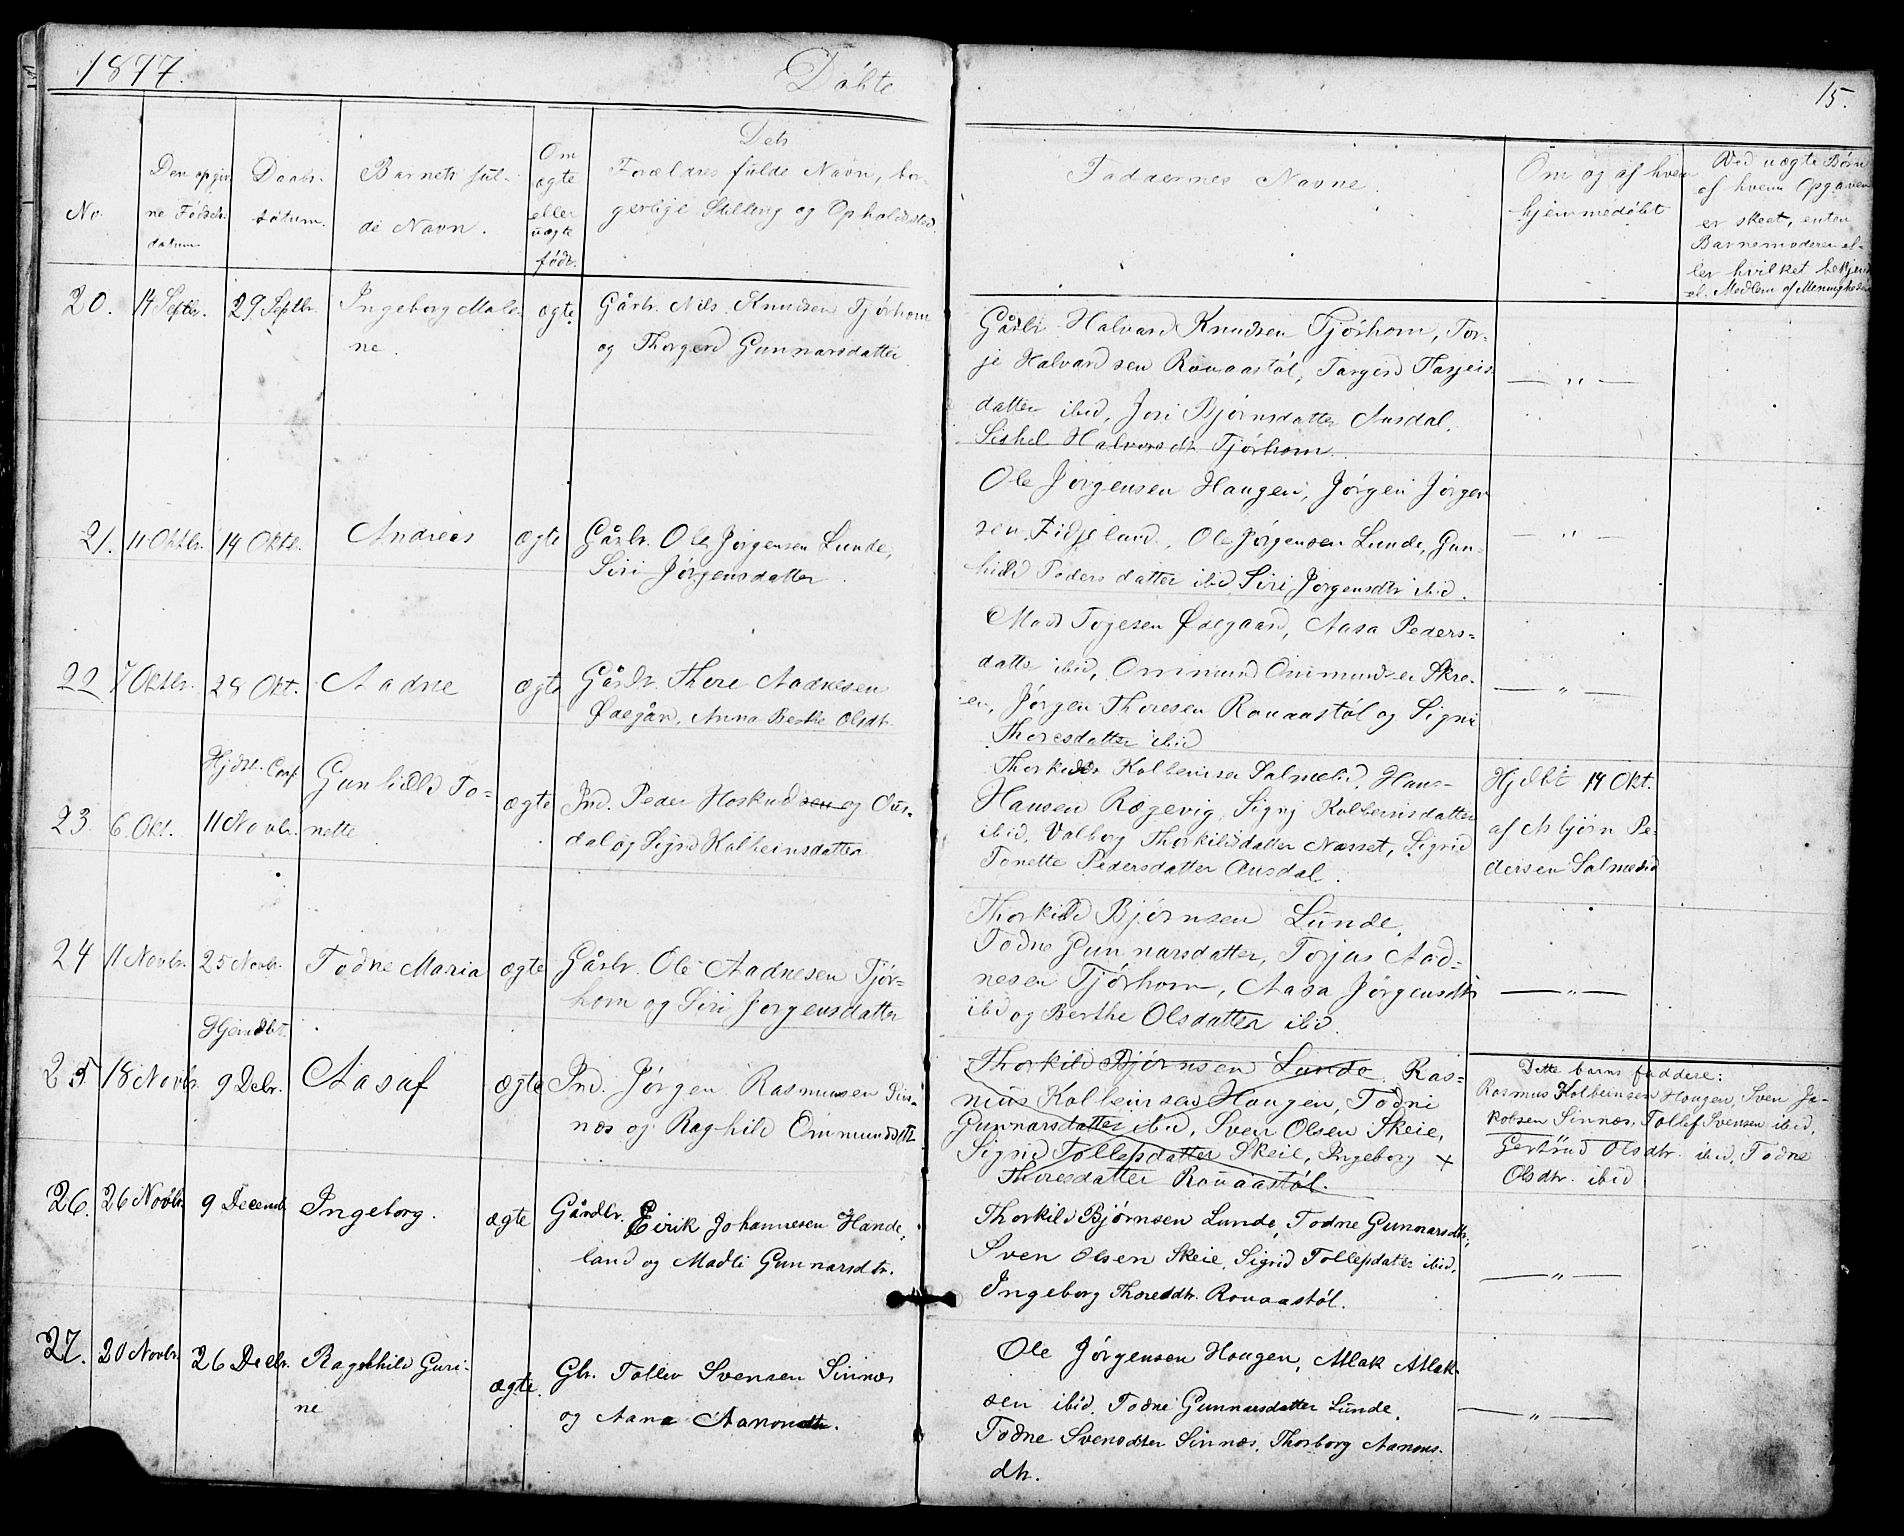 1877.
Döbte
15.
No
Den opgiv
ne Födsels
datum
Daabs
datum.
Barnets ful-
de Navn.
Om
ægte
eller
uægte
födt.
Dets
Forældres fulde Navn, bor-
gerlige Stilling og Opholdssted.
Faddernes Navne.
Om og af hvem
hjemmedöbt
Ved uægte Börn
af hvem Opgaven
er skeet, enten
Barnemoderen el-
ler hvilket bekjendt
Medlem af Menigheden
20. 14 Septbr. 29 Septbr. Ingeborg Male- ægte Gårbr. Nils Knudsen Tjörhom
ne. og Thorgerd Gunnarsdatter
Gårbr Halvard Knudsen Tjörhom, Tor-
je Halvardsen Rouaastöl, Targerd Tarjeis
datter ibid, Jori Björnsdatter Ausdal.
Sishel Halvorsdtr Tjörhom.
— " —
21. 11 Oktbr. 14 Oktb. Andreas ægte Gårbr. Ole Jörgensen Lunde,
Siri Jörgensdatter.
Ole Jörgensen Haugen, Jörgen Jörgen
sen Fidjeland, Ole Jörgensen Lunde, Gun-
hild Peders datter ibid, Siri Jörgensdtr ibid.
— " —
22 7 Oktbr. 28 Okt. Aadne ægte Gårbr. Thore Aadnesen
Ödegår, Anna Berthe Olsdt.
Mads Togesen Ødegaard, Aasa Peders-
datter ibid, Ommund Ommundsen Skre-
en, Jörgen Thoresen Rouaastöl og Signi
Thoresdatter ibid
— " —
Hjdbt. Conf.
23. 6. Okt. 11 Novbr. Gunhild To-
nette ægte Ind. Peder Hoskuldsen og Ous-
dal og Signi Kolbeinsdatter
Thorkild Kolbeinsen Salmelid, Hans-
Hansen Rægevig, Signj Kolbeinsdatter
ibid, Valborg Thorkildsdatter Næsset, Sigrid
Tonette Pedersdatter Ousdal.
Hjdbt 14 Okt.
af Asbjörn Pe-
dersen Salmelid
24 11 Novbr. 25 Novbr. Todne Maria ægte Gårbr. Ole Aadnesen Tjör-
hom og Siri Jörgensdatter
Thorkild Björnsen Lunde,
Todne Gunnarsdatter, Torjus Aad-
nesen Tjörhom, Aasa Jörgensdtr
ibid og Berthe Olsdatter ibid.
— " —
Hjemdbt.
25. 18 Novbr. 9 Debr. Aasuf ægte Ind. Jörgen Rasmusen Sin-
næs og Raghild Ommundsdtr
Thorkild Björnsen Lunde, Ras-
mus Kolbeinsen Haugen, Todni
Gunnarsdatter ibid, Sven Olsen Skeie,
Sigrid Tollefsdatter Skeie, Ingeborg +
Thoresdatter Rouaastöl.
Dette barns faddere:
Rasmus Kolbeinsen Haugen, Sven Ja-
kobsen Sinnæs, Tollef Svensen ibid,
Gertrud Olsdtr. ibid, Todne
Olsdtr. ibid
26. 26 Novbr. 9 Decemb. Ingeborg. ægte Gårdbr. Eirik Johannesen Hande-
land og Madli Gunnarsdtr.
Thorkild Björnsen Lunde, Todne Gunnarsdtr.,
Sven Olsen Skeie, Sigrid Tollefsdatter ibid,
Ingeborg Thoresdtr. Rouaastöl.
— " —
27. 20 Novbr. 26 Decbr. Ragnhild Guri-
ne ægte. Gbr. Tollev Svensen Sinnæs
og Aana Aanondtr.
Ole Jörgensen Haugen, Atlak Atlak-
sen ibid. Todne Gunnarsdatter Lunde,
Todne Svensdtter Sinnæs, Thorborg Aanons-
dtr.
— " —